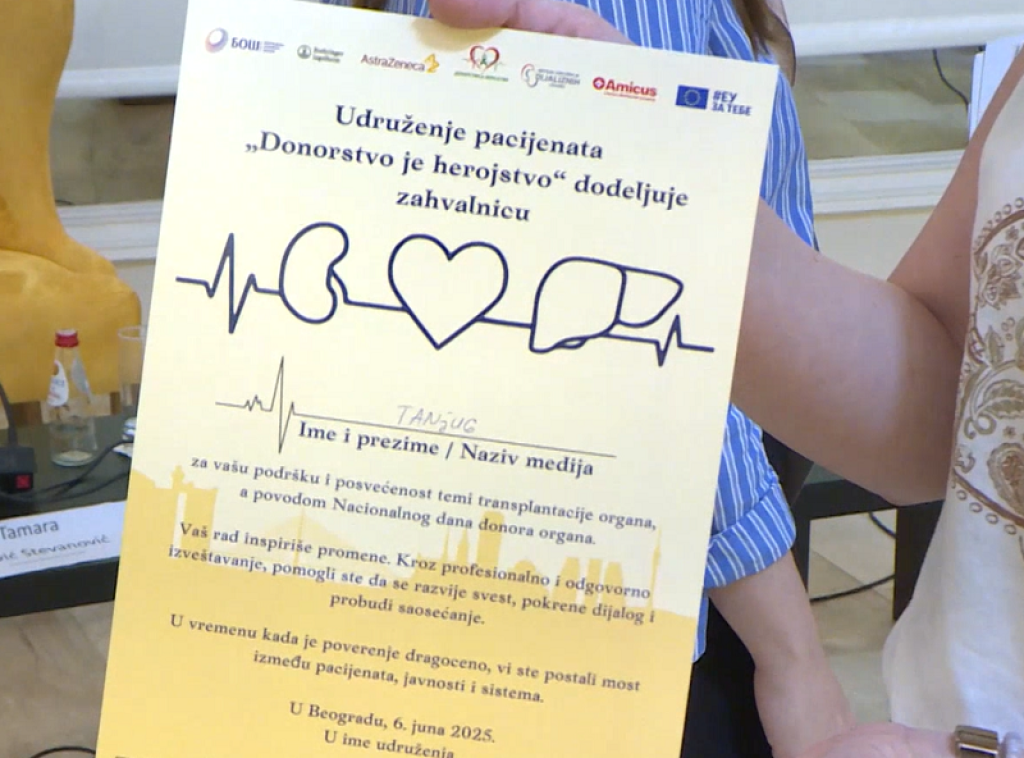 БОШ
AstraZeneca
Amicus
#ЕУ
ЗА ТЕБЕ
Udruženje pacijenata
„Donorstvo je herojstvo“ dodeljuje
zahvalnicu
TANjUG
Ime i prezime / Naziv medija
za vašu podršku i posvećenost temi transplantacije organa,
a povodom Nacionalnog dana donora organa.
Vaš rad inspiriše promene. Kroz profesionalno i odgovorno
izveštavanje, pomogli ste da se razvije svest, pokrene dijalog i
probudi saosećanje.
U vremenu kada je poverenje dragoceno, vi ste postali most
između pacijenata, javnosti i sistema.
U Beogradu, 6. juna 2025.
U ime udruženja
Tamara
Stevanović